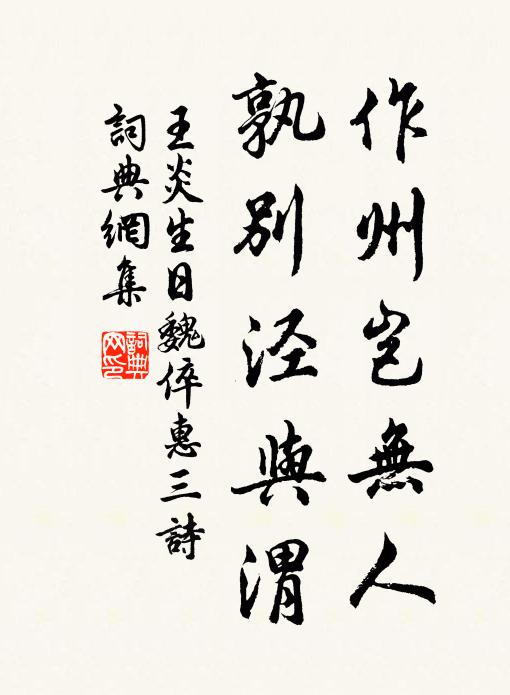 作州豈無人
孰別涇與渭
王炎生日魏倅惠三詩
詞典網集
詞典
网印